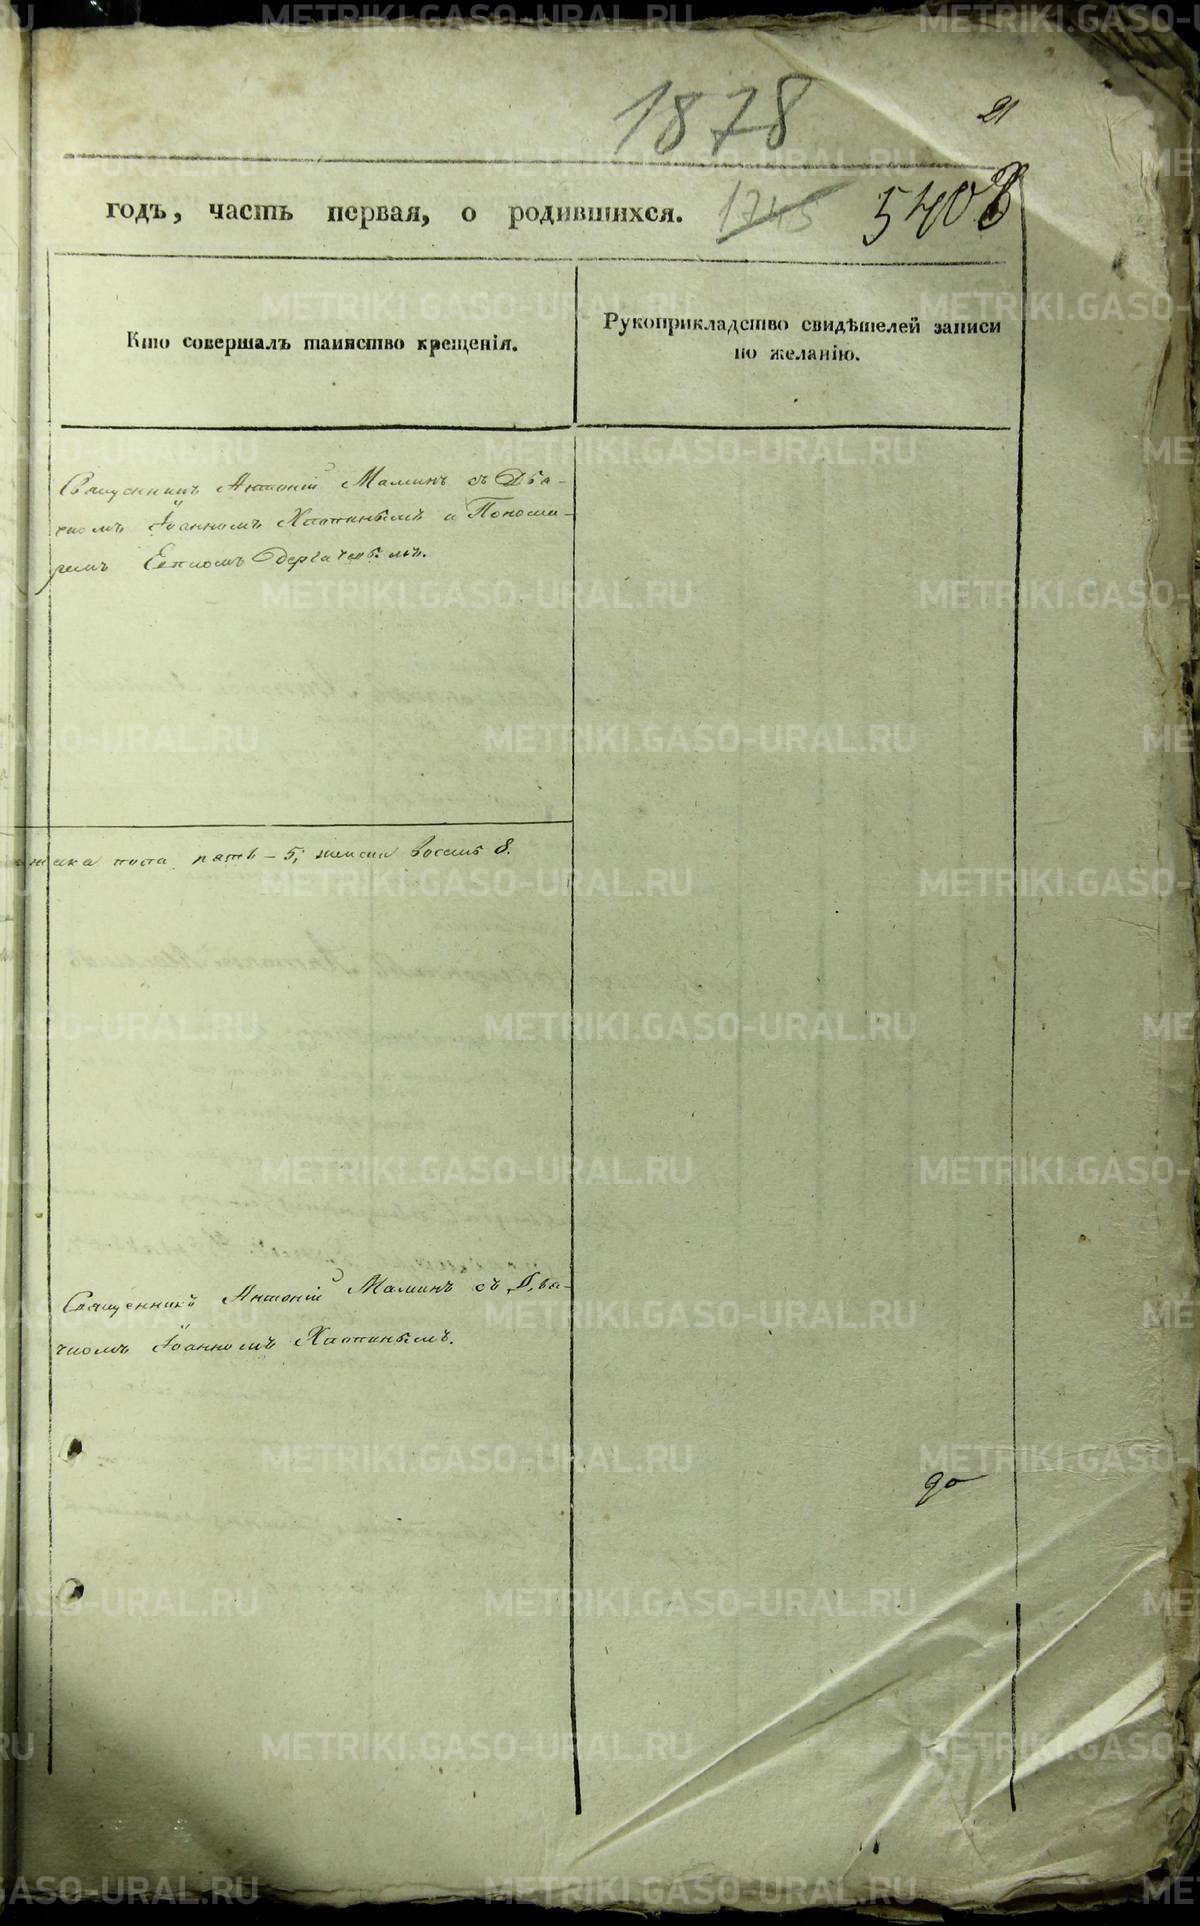 1878
21
годъ, часть первая, о родившихся. 1745 5406
Кто совершалъ таинство крещенія.
Рукоприкладство свидѣтелей записи
по желанію.
Священникъ Антоній Маминъ съ Дья-
чкомъ Іоанномъ Хлопинымъ и Понома-
ремъ
пола пять – 5, женска восемь 8.
Священникъ Антоній Маминъ съ Дья-
чкомъ Іоанномъ Хлопинымъ.
METRIKI.GASO-URAL.RU